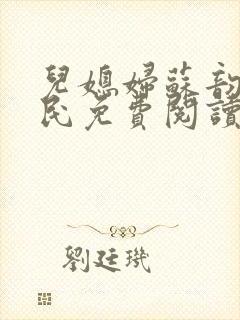 兒媳婦蘇韵
民免費閱讀
劉廷璣